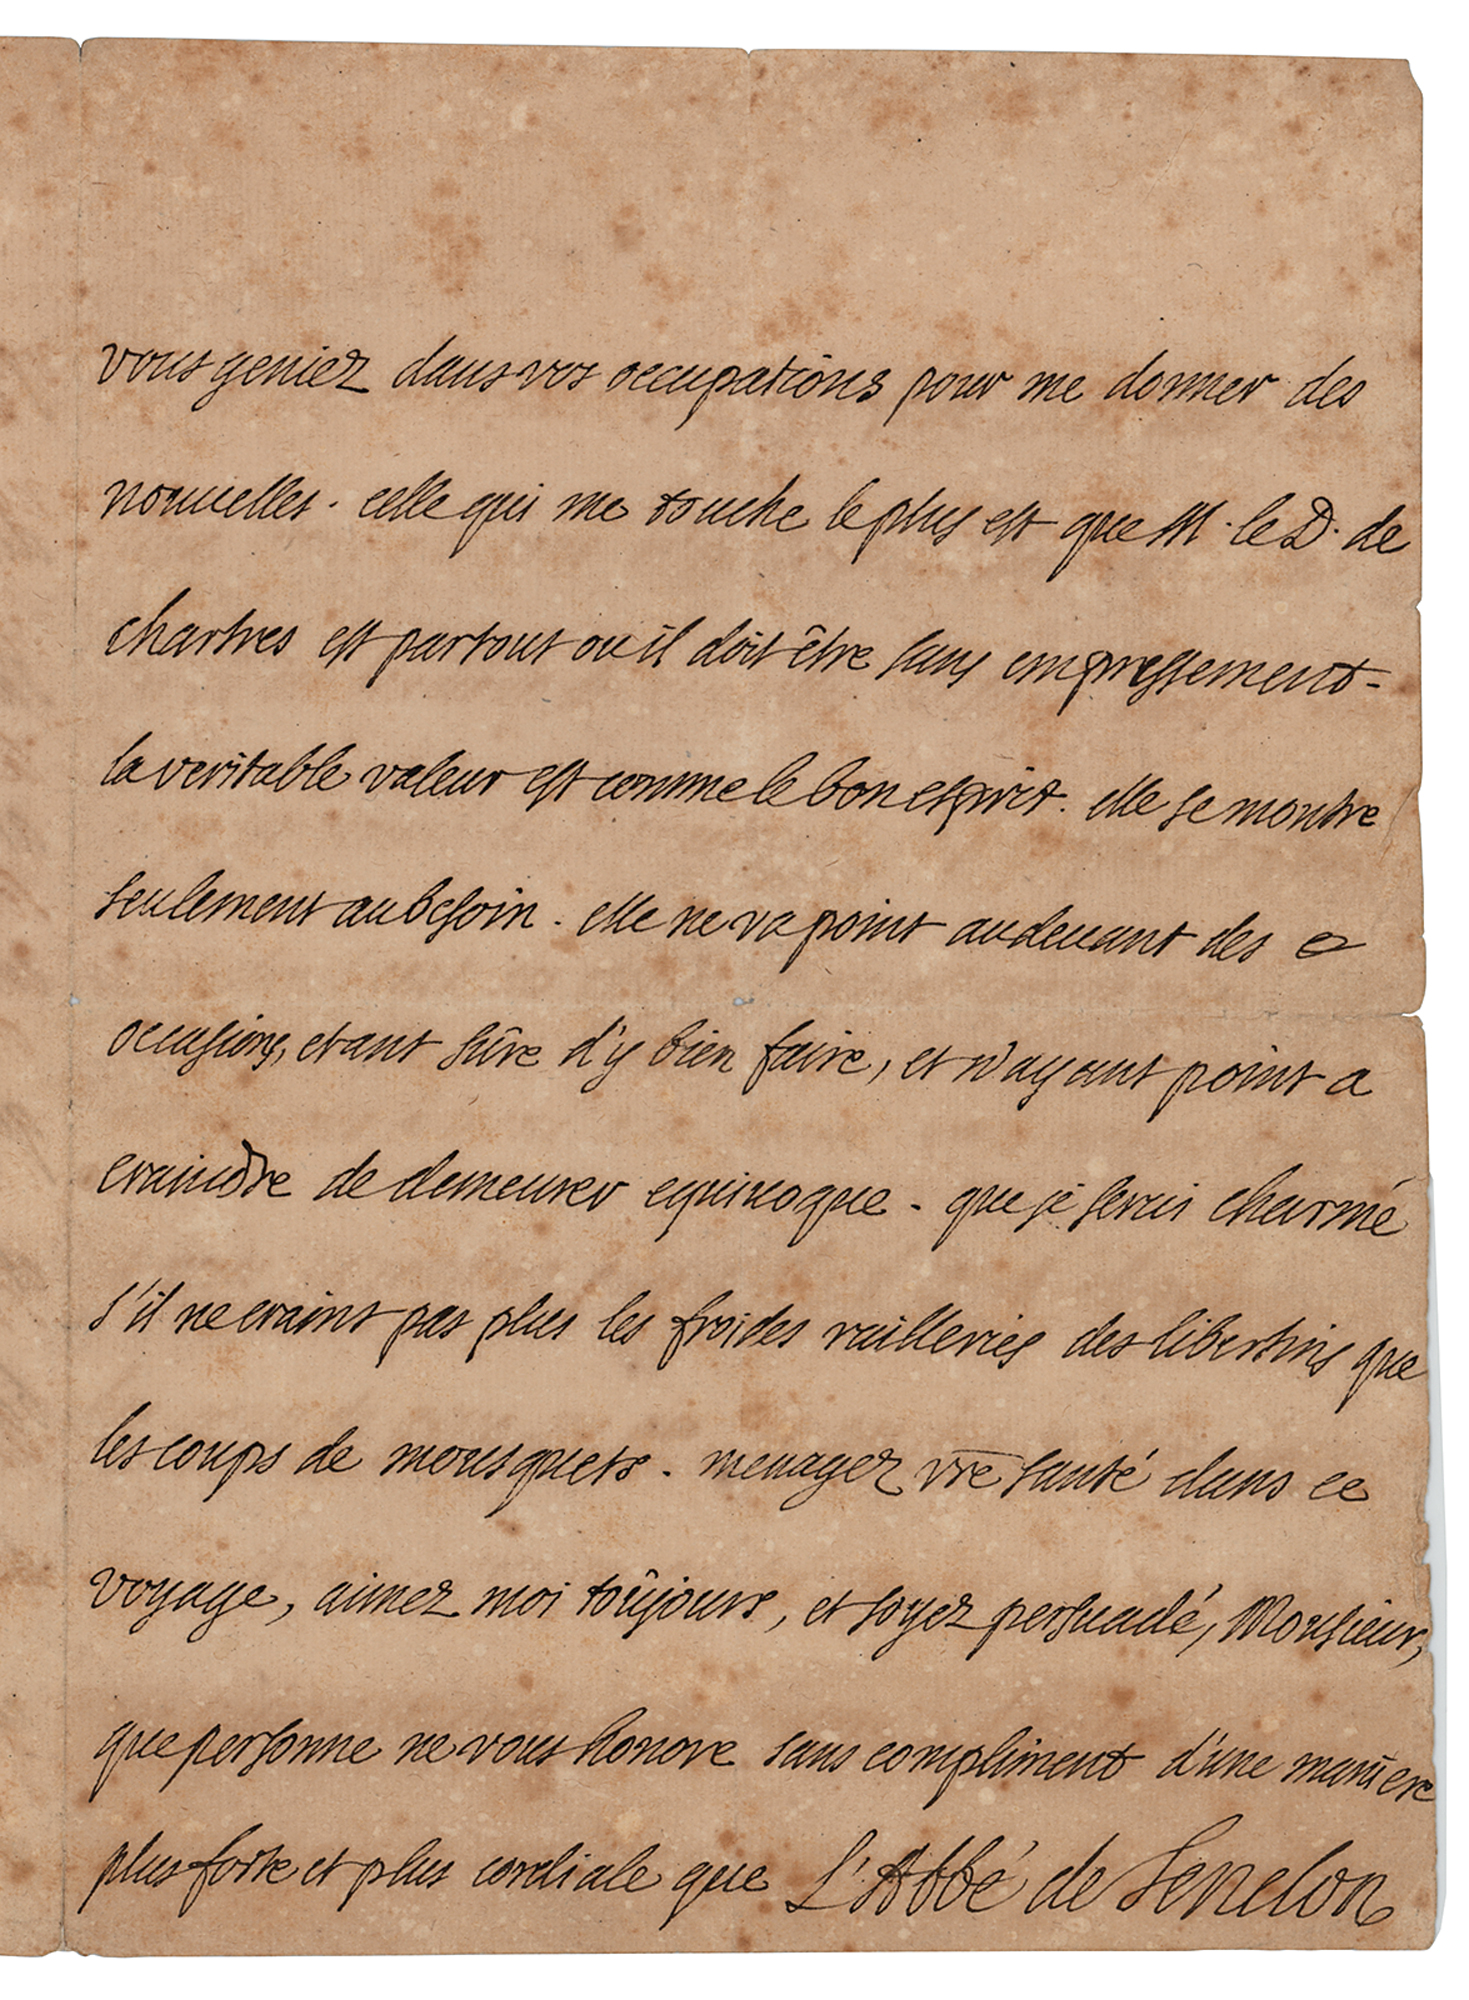 vous geniez dans vos occupations pour me donner des
nouuelles. celle qui me touche le plus est que M. le D. de
chartres est partout ou il doit être sans empressement.
la veritable valeur est comme le bon esprit. elle se montre
seulement au besoin. elle ne va point audeuant des
occasions, etant sûre d'y bien faire, et n'ayant point a
craindre de demeurer equiuoque. que je serais charmé
s'il ne craint pas plus les froides railleries des libertins que
les coups de mousquets. menagez vre santé dans ce
voyage, aimez moi toûjours, et soyez persuadé, Monsieur,
que personne ne vous honore sans compliment d'une maniere
plus forte et plus cordiale que L'Abbé de Fenelon